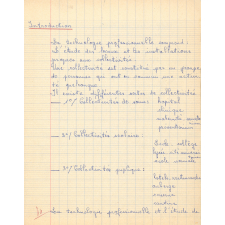 Introduction
La technologie professionnelle comprend :
L'étude des locaux et les installations
propres aux collectivités.
Une collectivité est constituée par un groupe
de personnes qui ont en commun une
Il existe différentes sortes de collectivités
1°/ Collectivités de soins : hopital
clinique
maternité
2°/ Collectivités scolaires :
Ecole
3°/ Collectivités publique :
hotels, restaurants
auberge
caserne
La technologie professionnelle est l'étude de